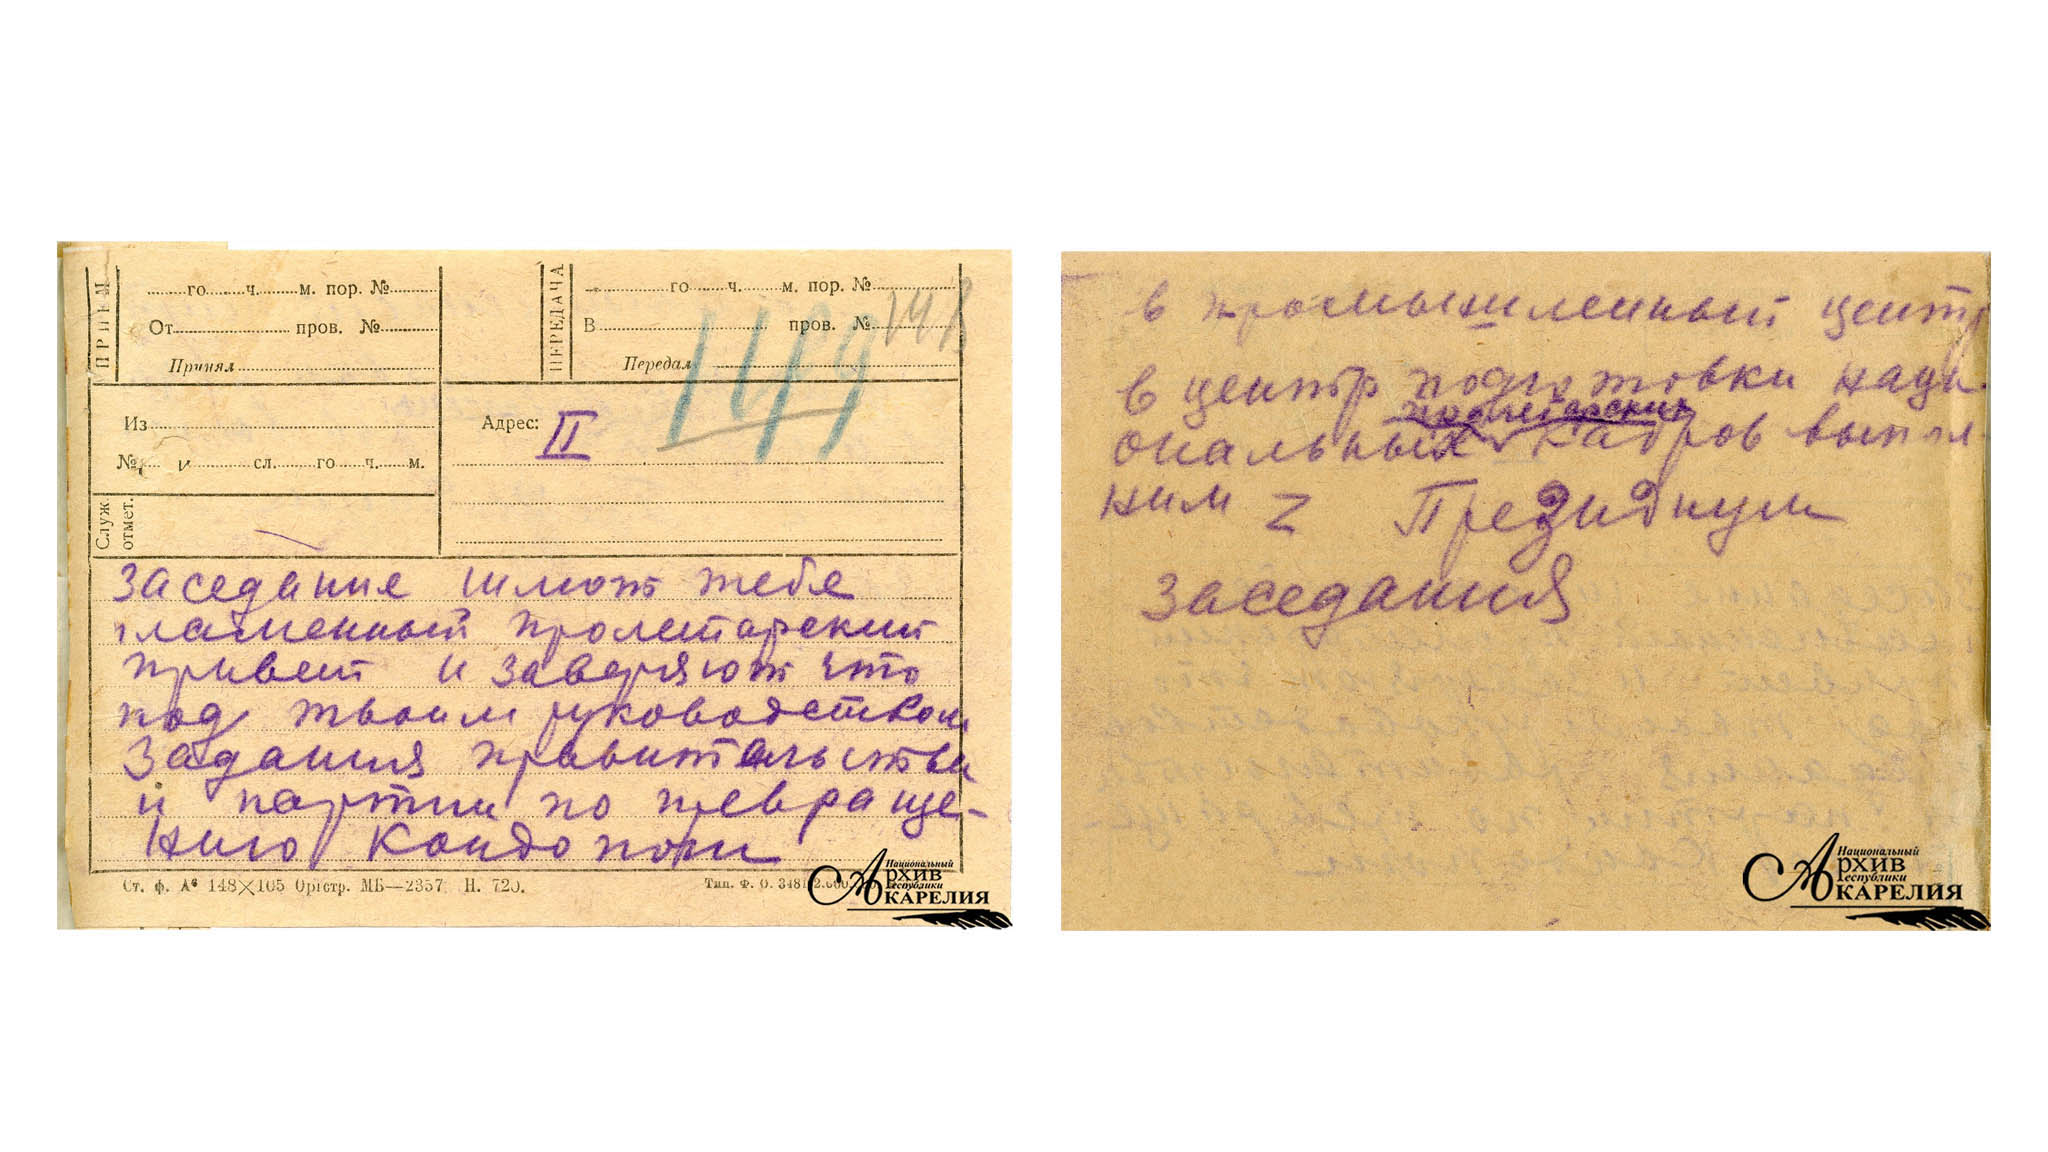 ПРИЕМ
го ч. м. пор. №
От пров. №
Принял
ПЕРЕДАЧА
го ч. м. пор. №
В пров. № 148
Передал
149
Из
№ сл. го ч. м.
Адрес: II
Служ. отмет.
заседание шлют тебе
пламенный пролетарский
привет и заверяют что
под твоим руководством
задания правительства
и партии по превраще-
нию Кондопоги
Ст. ф. А6 148×105 Оргстр. МБ—2357 Н. 720.
Тип. Ф. О. 3481
Национальный
Архив
Республики
Карелия
в промышленный центр
в центр подготовки наци
пролетарских
ональных кадров выпол
ним Z Президиум
заседания
Национальный
Архив
Республики
Карелия